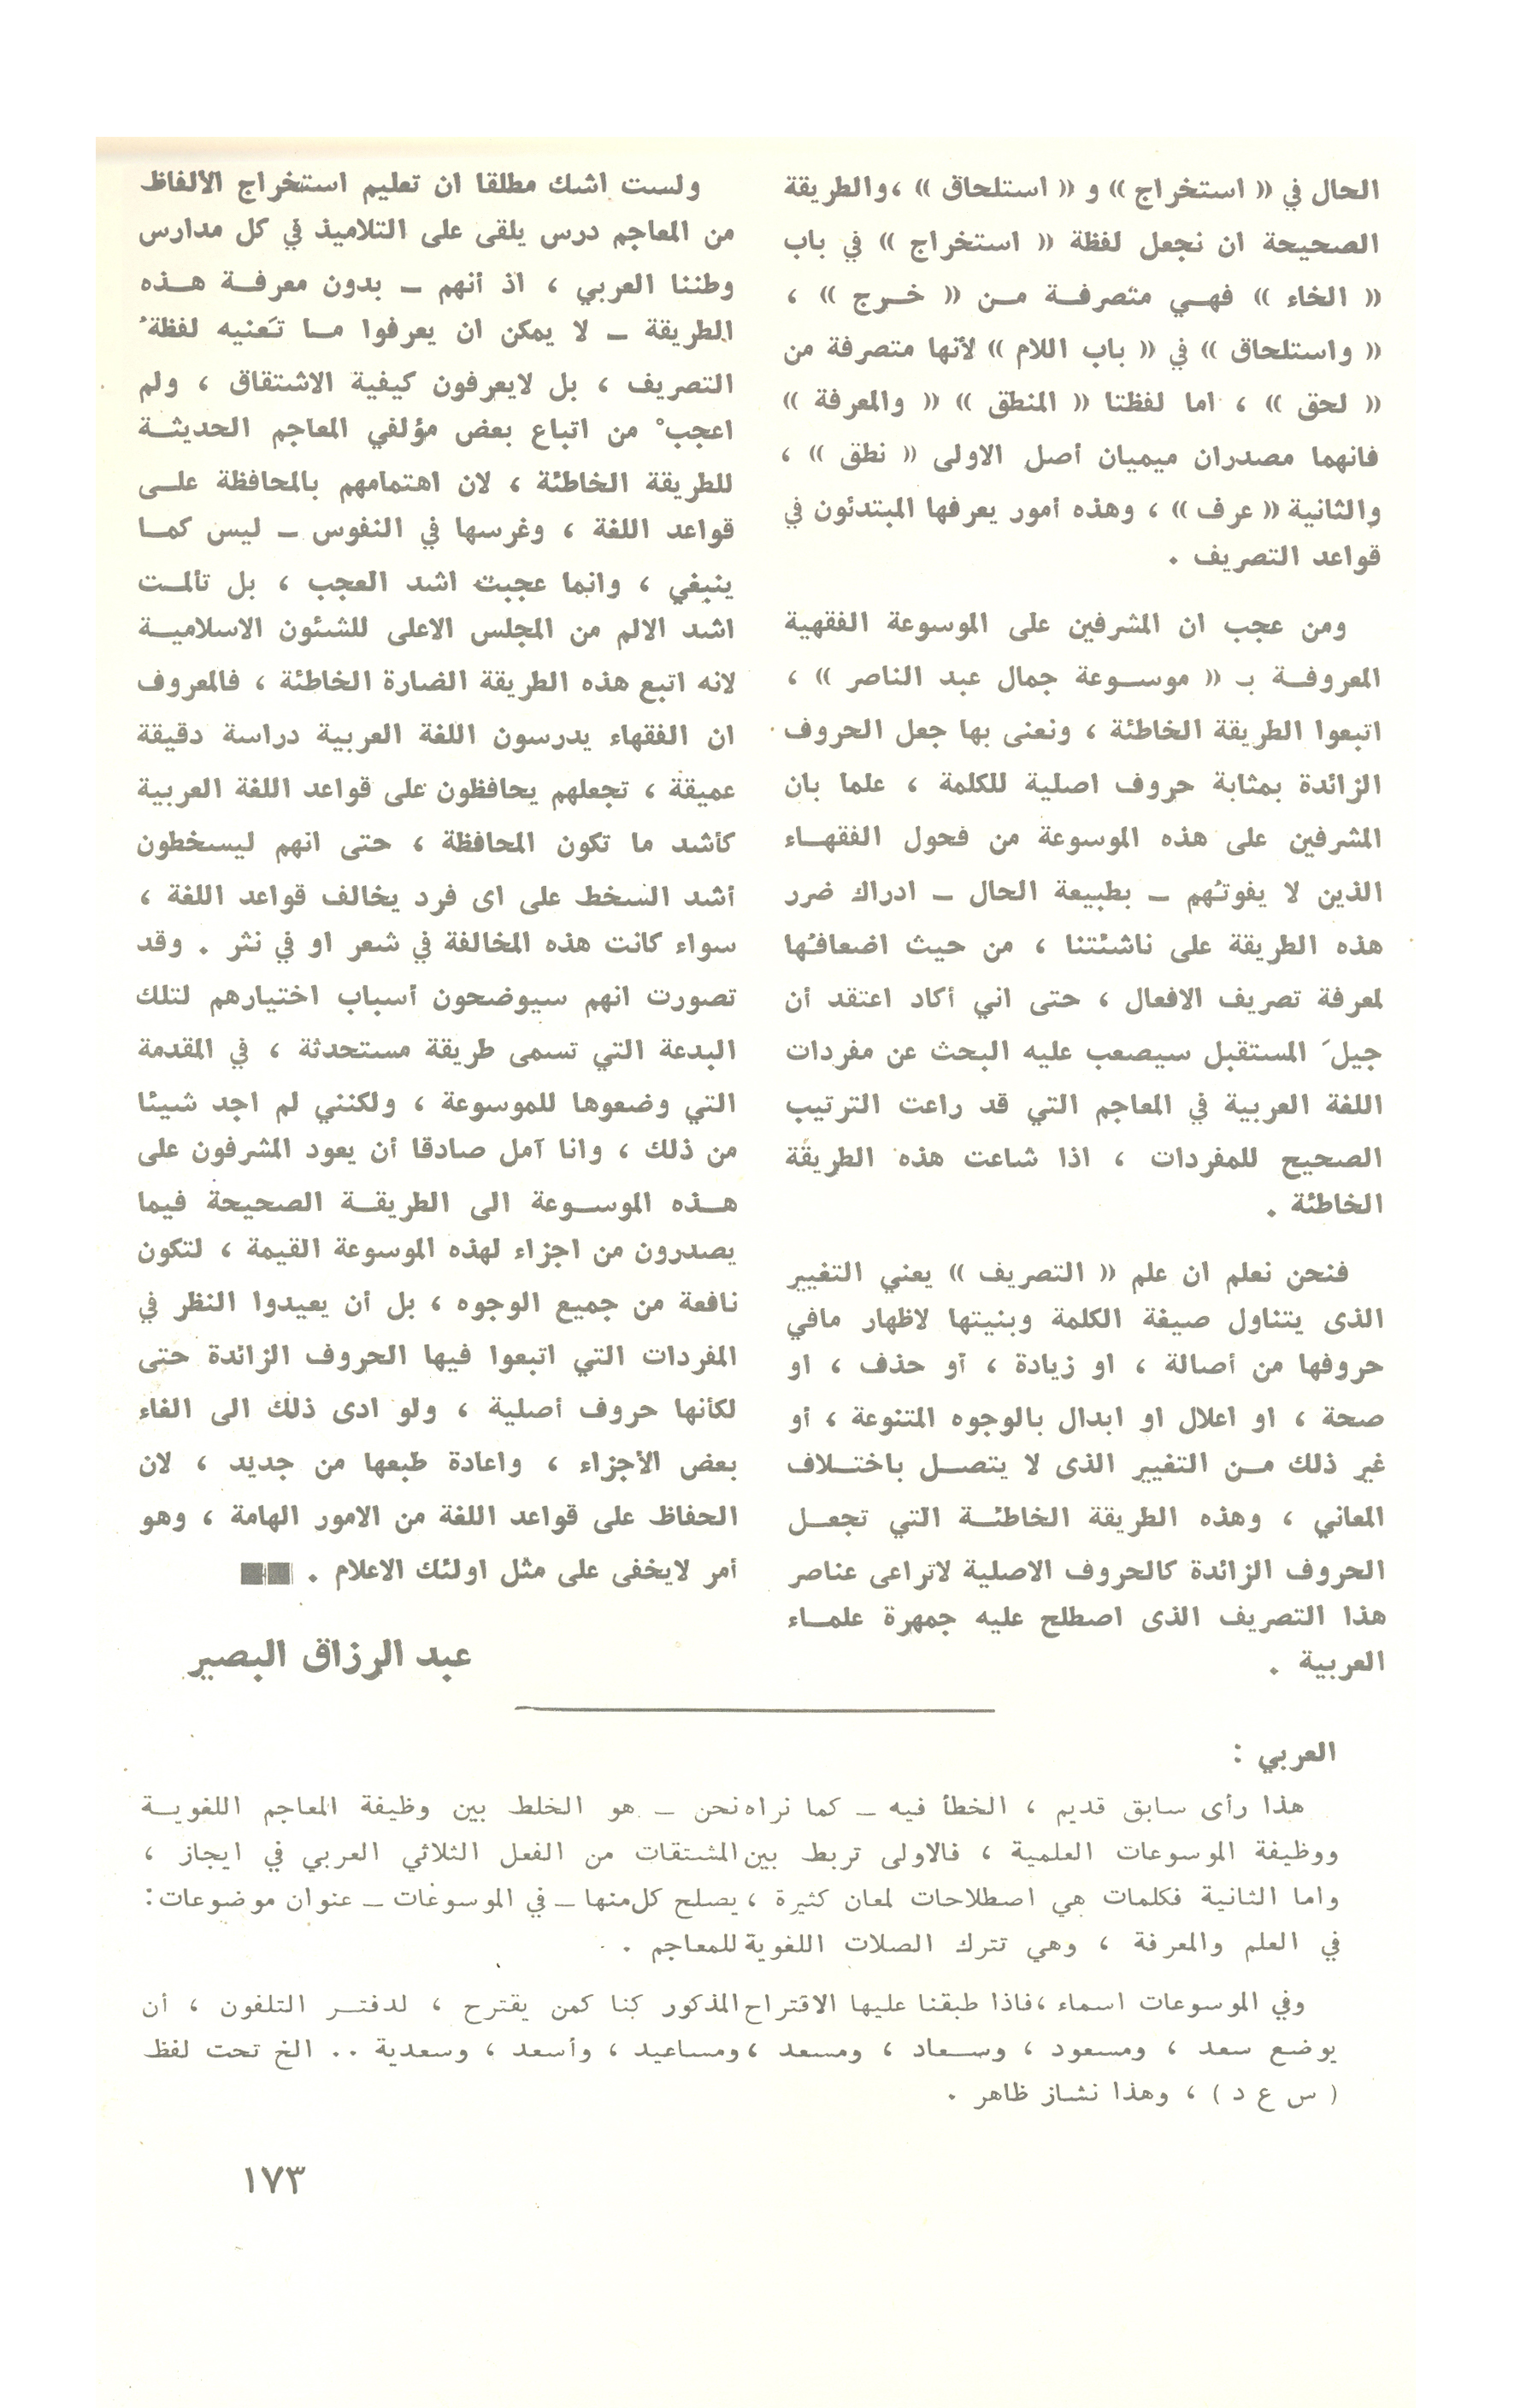 الحال في « استخراج » و « استلحاق » ، والطريقة
الصحيحة ان نجعل لفظة « استخراج » في باب
« الخاء » فهـي متصرفـة مـن « خـرج » ،
« واستلحاق » في « باب اللام » لأنها متصرفة من
« لحق » ، اما لفظتا « المنطق » « والمعرفة »
فانهما مصدران ميميان أصل الاولى « نطق » ،
والثانية « عرف » ، وهذه أمور يعرفها المبتدئون في
قواعد التصريف .
ومن عجب ان المشرفين على الموسوعة الفقهية
المعروفـة بـ « موسـوعة جمال عبد الناصر » ،
اتبعوا الطريقة الخاطئة ، ونعنى بها جعل الحروف
الزائدة بمثابة حروف اصلية للكلمة ، علما بان
المشرفين على هذه الموسوعة من فحول الفقهـاء
الذين لا يفوتهم – بطبيعة الحال – ادراك ضرر
هذه الطريقة على ناشئتنا ، من حيث اضعافها
لمعرفة تصريف الافعال ، حتى اني أكاد اعتقد أن
جيلَ المستقبل سيصعب عليه البحث عن مفردات
اللغة العربية في المعاجم التي قد راعت الترتيب
الصحيح للمفردات ، اذا شاعت هذه الطريقة
الخاطئة .
فنحن نعلم ان علم « التصريف » يعني التغيير
الذى يتناول صيغة الكلمة وبنيتها لاظهار مافي
حروفها من أصالة ، او زيادة ، أو حذف ، او
صحة ، او اعلال او ابدال بالوجوه المتنوعة ، أو
غير ذلك مـن التغيير الذى لا يتصـل باختـلاف
المعاني ، وهذه الطريقة الخاطئـة التي تجعـل
الحروف الزائدة كالحروف الاصلية لاتراعى عناصر
هذا التصريف الذى اصطلح عليه جمهرة علمـاء
العربية .
ولست اشك مطلقا ان تعليم استخراج الألفاظ
من المعاجم درس يلقى على التلاميذ في كل مدارس
وطننا العربي ، اذ أنهم – بدون معرفـة هـذه
الطريقة – لا يمكن ان يعرفوا مـا تَعنيه لفظةُ
التصريف ، بل لايعرفون كيفية الاشتقاق ، ولم
اعجبْ من اتباع بعض مؤلفي المعاجم الحديثـة
للطريقة الخاطئة ، لان اهتمامهم بالمحافظة علـى
قواعد اللغة ، وغرسها في النفوس – ليس كمـا
ينبغي ، وانما عجبت اشد العجب ، بل تألمـت
اشد الالم من المجلس الاعلى للشئون الاسلاميـة
لانه اتبع هذه الطريقة الضارة الخاطئة ، فالمعروف
ان الفقهاء يدرسون اللغة العربية دراسة دقيقة
عميقة ، تجعلهم يحافظون على قواعد اللغة العربية
كأشد ما تكون المحافظة ، حتى انهم ليسخطون
أشد السخط على اى فرد يخالف قواعد اللغة ،
سواء كانت هذه المخالفة في شعر او في نثر . وقد
تصورت انهم سيوضحون أسباب اختيارهم لتلك
البدعة التي تسمى طريقة مستحدثة ، في المقدمة
التي وضعوها للموسوعة ، ولكنني لم اجد شيئا
من ذلك ، وانا آمل صادقا أن يعود المشرفون على
هـذه الموسـوعة الى الطريقـة الصحيحة فيما
يصدرون من اجزاء لهذه الموسوعة القيمة ، لتكون
نافعة من جميع الوجوه ، بل أن يعيدوا النظر في
المفردات التي اتبعوا فيها الحروف الزائدة حتى
لكأنها حروف أصلية ، ولو ادى ذلك الى الغاء
بعض الأجزاء ، واعادة طبعها من جديد ، لان
الحفاظ على قواعد اللغة من الامور الهامة ، وهو
أمر لايخفى على مثل اولئك الاعلام . ■■
عبد الرزاق البصير
العربي :
هذا رأى سابق قديم ، الخطأ فيه – كما نراه نحن – هو الخلط بين وظيفة المعاجم اللغويـة
ووظيفة الموسوعات العلمية ، فالاولى تربط بين المشتقات من الفعل الثلاثي العربي في ايجاز ،
واما الثانية فكلمات هي اصطلاحات لمعان كثيرة ، يصلح كل منها – في الموسوعات – عنوان موضوعات :
في العلم والمعرفة ، وهي تترك الصلات اللغوية للمعاجم .
وفي الموسوعات اسماء ، فاذا طبقنا عليها الاقتراح المذكور كنا كمن يقترح ، لدفتـر التلفون ، أن
يوضع سعد ، ومسعود ، وسـعاد ، ومسعد ، ومساعيد ، وأسعد ، وسعدية .. الخ تحت لفظ
( س ع د ) ، وهذا نشاز ظاهر .
١٧٣